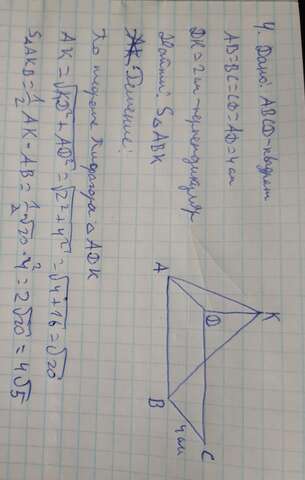 4. Дано: ABCD-квадрат
AB=BC=CD=AD=4см
DK=2см-перпендикуляр
Найти: S△ABK
Решение:
По теореме Пифагора △ADK
AK=√KD²+AD²=√2²+4²=√4+16=√20
S△AKB=1/2 AK·AB=1/2√20·4=2√20=4√5
A
B
C
D
K
4см